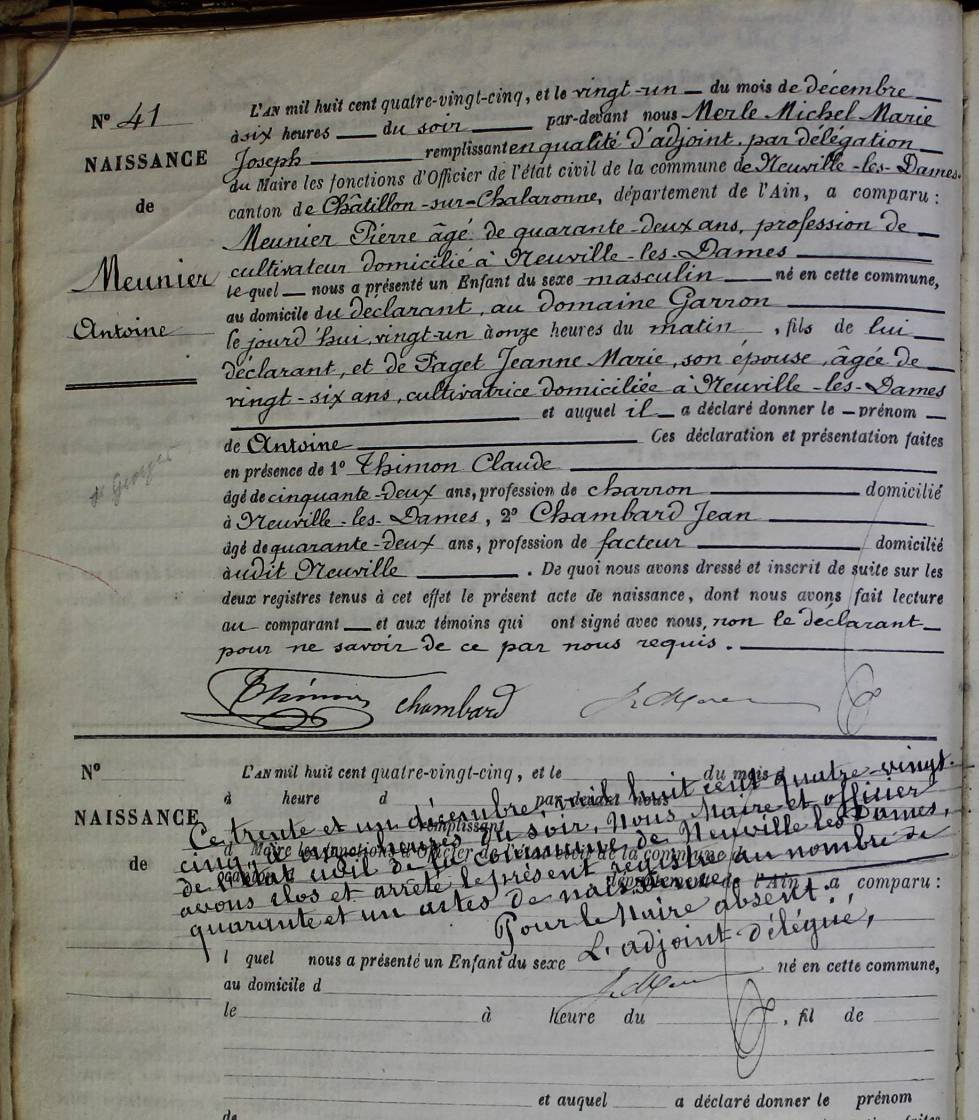 N° 41
NAISSANCE
de
Meunier
Antoine
L'AN mil huit cent quatre-vingt-cinq, et le vingt-un du mois de décembre
à six heures du soir par-devant nous Merle Michel Marie
Joseph remplissant en qualité d'adjoint, par délégation
du Maire les fonctions d'Officier de l'état civil de la commune de Neuville-les-Dames.
canton de Châtillon-sur-Chalaronne, département de l'Ain, a comparu :
Meunier Pierre âgé de quarante-deux ans, profession de
cultivateur domicilié à Neuville-les-Dames
le-quel nous a présenté un Enfant du sexe masculin né en cette commune,
au domicile du déclarant, au domaine Garron
le jourd'hui vingt-un à onze heures du matin, fils de lui
déclarant, et de Paget Jeanne Marie, son épouse, âgée de
vingt-six ans, cultivatrice domiciliée à Neuville-les-Dames
et auquel il a déclaré donner le prénom
de Antoine Ces déclaration et présentation faites
en présence de 1° Thimon Claude
âgé de cinquante-deux ans, profession de charron domicilié
à Neuville-les-Dames, 2° Chambard Jean
âgé de quarante-deux ans, profession de facteur domicilié
audit Neuville. De quoi nous avons dressé et inscrit de suite sur les
deux registres tenus à cet effet le présent acte de naissance, dont nous avons fait lecture
au comparant et aux témoins qui ont signé avec nous, non le déclarant
pour ne savoir de ce par nous requis.
Thimon Chambard
N°
NAISSANCE
de
L'AN mil huit cent quatre-vingt-cinq, et le du mois d
à heure d par-devant nous
remplissant
d Maire les fonctions d'Officier de l'état civil de la commune d
canton d département de l'Ain, a comparu :
Ce trente et un décembre mil huit cent quatre-vingt
cinq, à onze heures du soir, Nous Maire et officier
de l'état civil de la commune de Neuville les Dames,
avons clos et arrêté le présent registre au nombre de
quarante et un actes de naissance.
Pour le Maire absent :
L'adjoint délégué,
l quel nous a présenté un Enfant du sexe né en cette commune,
au domicile d
le à heure du , fil de
et auquel a déclaré donner le prénom
de